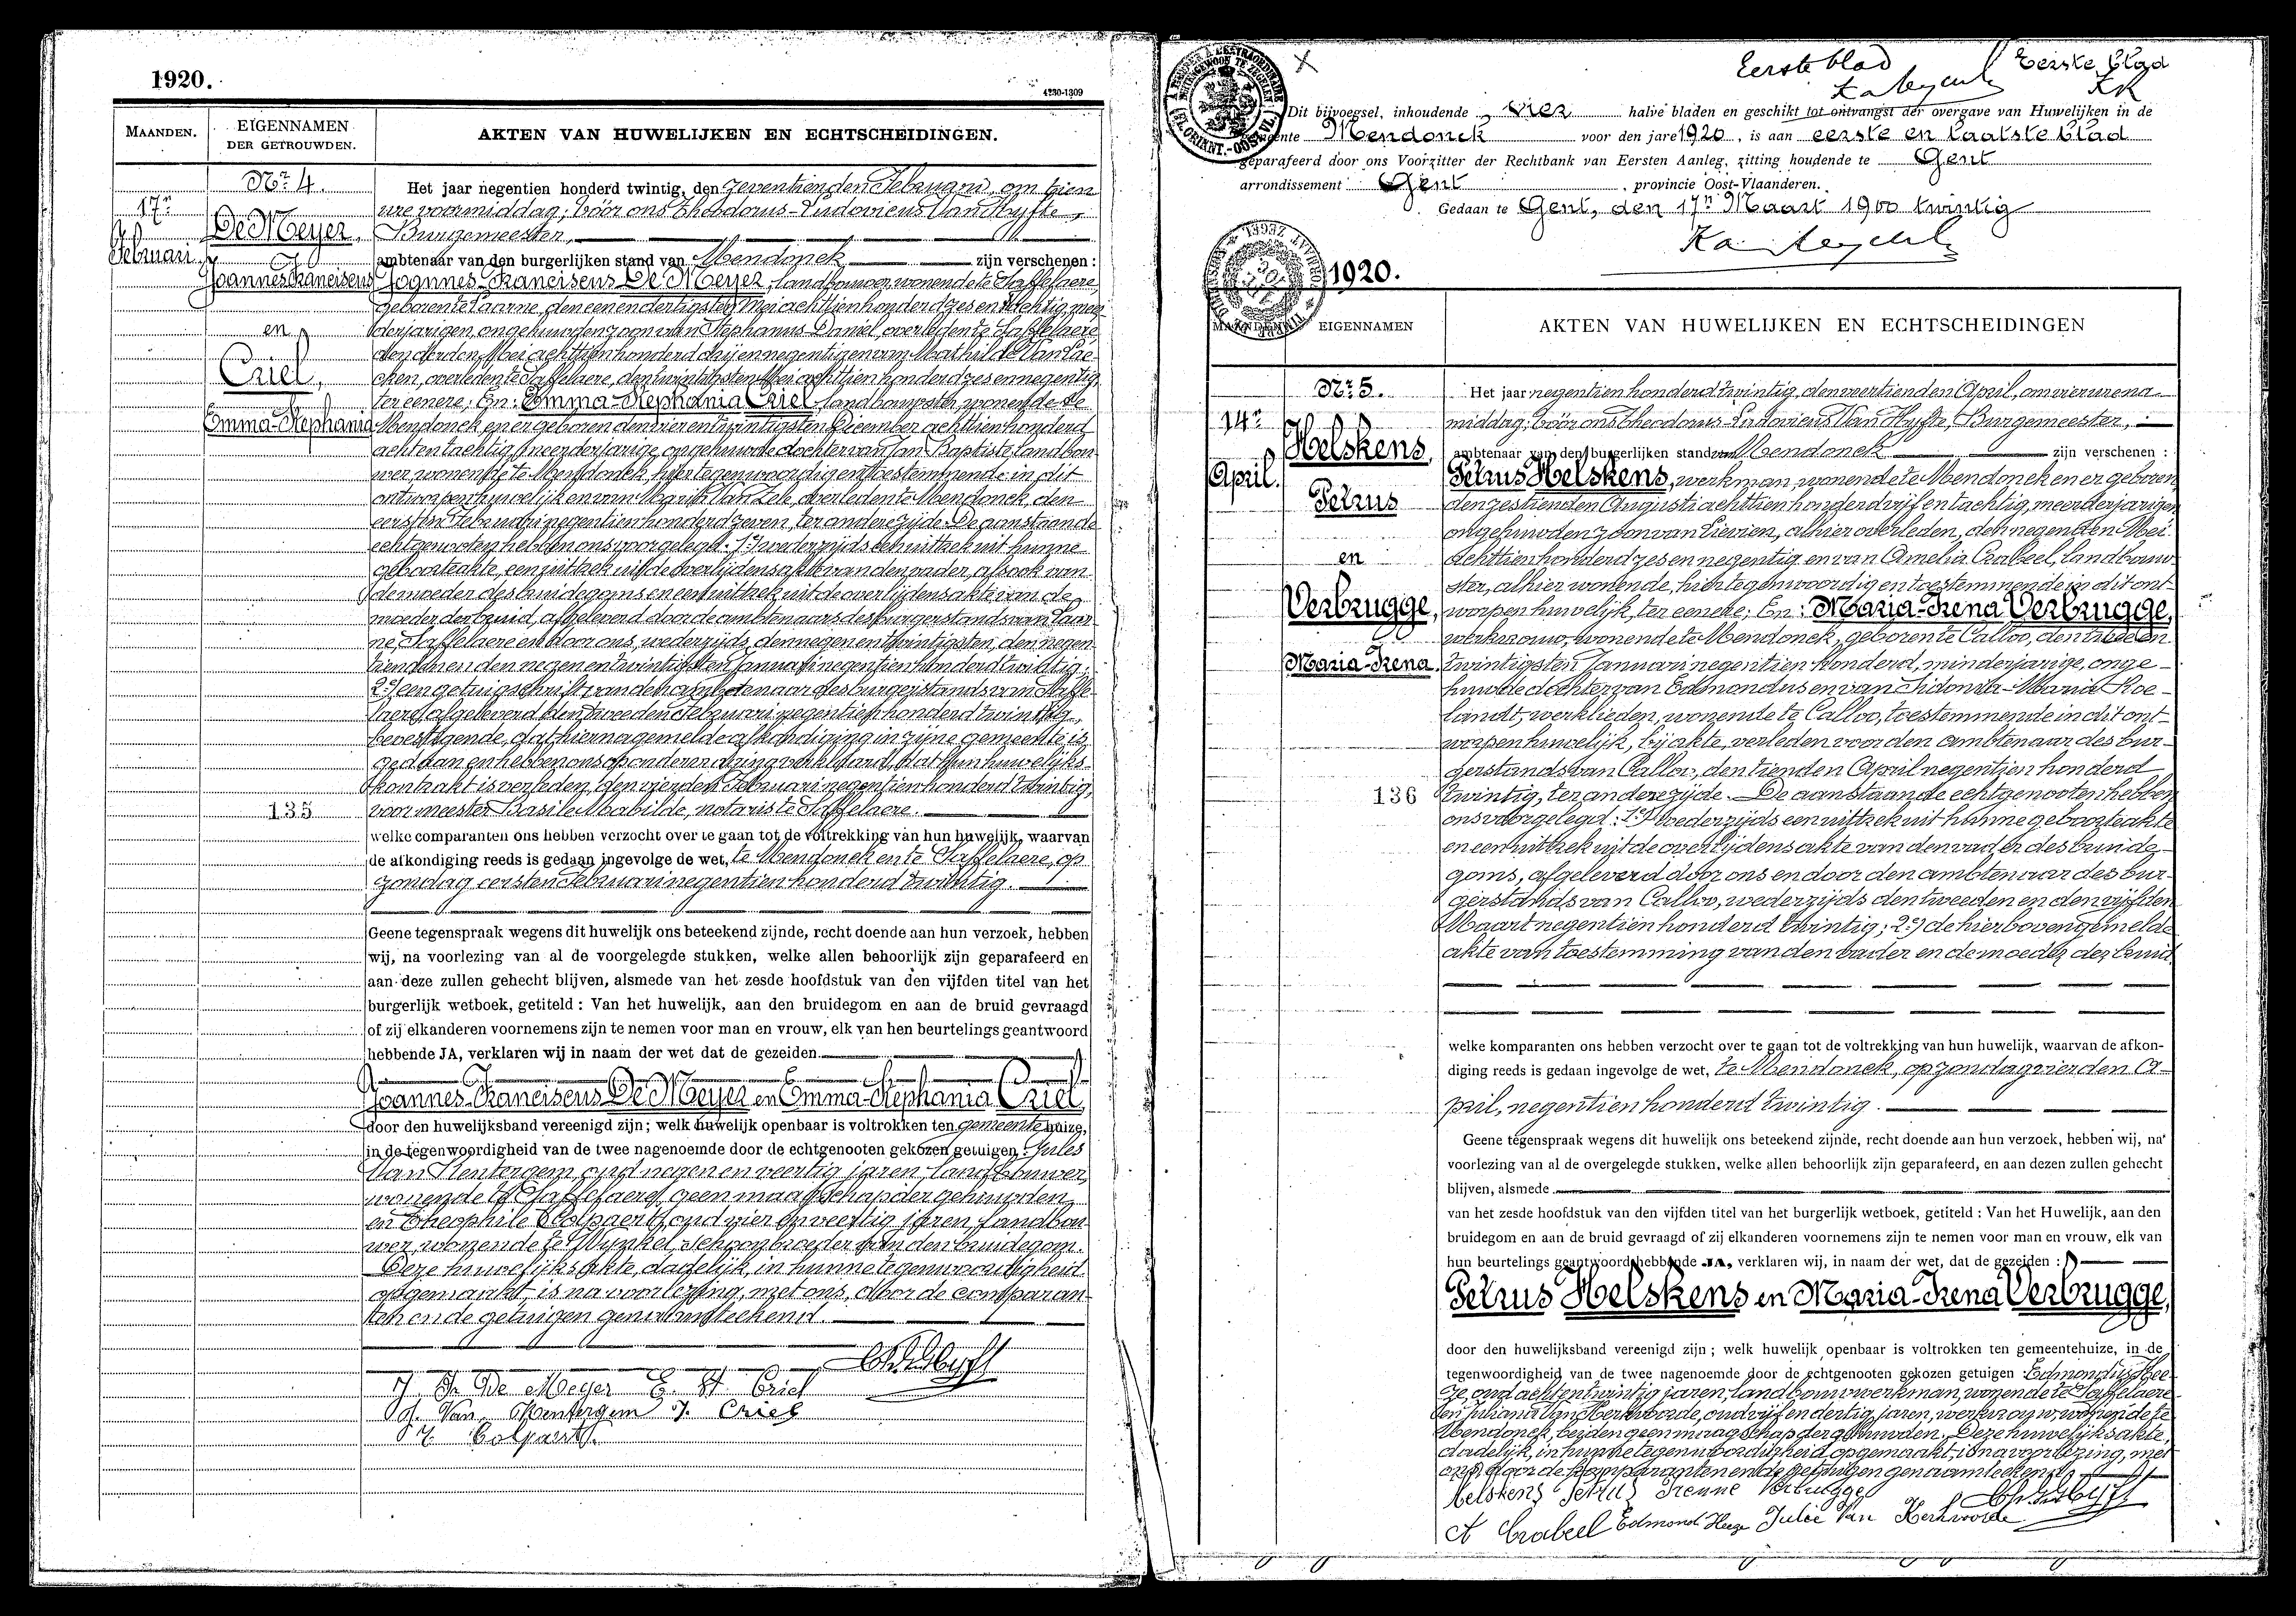 1920.
4230-1309
MAANDEN.
EIGENNAMEN
DER GETROUWDEN.
AKTEN VAN HUWELIJKEN EN ECHTSCHEIDINGEN.
Nr. 4.
17n
Februari
De Meyer,
Joannes Franciscus
en
Criel,
Emma-Stephania
135
Het jaar negentien honderd twintig, den zeventienden Februari, om tien
ure voormiddag; vóór ons Theodorus-Ludovicus Van Hyfte,
Burgemeester,
ambtenaar van den burgerlijken stand van Mendonck zijn verschenen:
Joannes-Franciscus De Meyer, landbouwer, wonende te Saffelaere,
geboren te Laarne, den een en dertigsten Mei achttienhonderd zes en tachtig, meer-
derjarigen, ongehuwden zoon van Stephanus-Daniel, overleden te Saffelaere,
den derden Mei achttienhonderd drij en negentig en van Mathilde Van Lae-
cken, overleden te Saffelaere, den twintigsten Mei achttienhonderd zes en negentig,
ter eenere; En: Emma-Stephania Criel, landbouwster, wonende te
Mendonck en er geboren den vier en twintigsten December achttienhonderd
acht en tachtig, meerderjarige ongehuwde dochter van Jan-Baptiste, landbou-
wer, wonende te Mendonck, hier tegenwoordig en toestemmende in dit
ontworpen huwelijk en van Van Zele, overleden te Mendonck, den
eersten Februari negentienhonderd zeven, ter andere zijde. De aanstaande
echtgenooten hebben ons voorgelegd: 1e/ wederzijds een uittrek uit hunne
geboorteakte, een uittrek uit de overlijdensakte van den vader, alsook van
de moeder des bruidegoms en een uittrek uit de overlijdensakte van de
moeder der bruid, afgeleverd door de ambtenaars des burgerstands van Laar-
ne, Saffelaere en door ons, wederzijds, den negen en twintigsten, den negen-
tienden en den negen en twintigsten Januari negentienhonderd twintig;
2e/ een getuigschrift van den ambtenaar des burgerstands van Saffe-
laere, afgeleverd den tweeden Februari negentien honderd twintig,
bevestigende, dat hiernagemelde afkondiging in zijne gemeente is
gedaan en hebben ons op ondervraging verklaard, dat hun huwelijks-
kontrakt is verleden, den vierden Februari negentienhonderd twintig,
voor meester Basile Mabilde, notaris te Saffelaere.
welke comparanten ons hebben verzocht over te gaan tot de voltrekking van hun huwelijk, waarvan
de afkondiging reeds is gedaan ingevolge de wet, te Mendonck en te Saffelaere, op
zondag eersten Februari negentien honderd twintig.
Geene tegenspraak wegens dit huwelijk ons beteekend zijnde, recht doende aan hun verzoek, hebben
wij, na voorlezing van al de voorgelegde stukken, welke allen behoorlijk zijn geparafeerd en
aan deze zullen gehecht blijven, alsmede van het zesde hoofdstuk van den vijfden titel van het
burgerlijk wetboek, getiteld : Van het huwelijk, aan den bruidegom en aan de bruid gevraagd
of zij elkanderen voornemens zijn te nemen voor man en vrouw, elk van hen beurtelings geantwoord
hebbende JA, verklaren wij in naam der wet dat de gezeiden
Joannes-Franciscus De Meyer en Emma-Stephania Criel,
door den huwelijksband vereenigd zijn; welk huwelijk openbaar is voltrokken ten gemeentehuize,
in de tegenwoordigheid van de twee nagenoemde door de echtgenooten gekozen getuigen Jules
Van Hentergem, oud negen en veertig jaren, landbouwer,
wonende te Saffelaere, geen maagschap der gehuwden,
en Theophile Colpaert, oud vier en veertig jaren, landbou-
wer, wonende te Wynkel, schoonbroeder van den bruidegom.
Deze huwelijksakte, dadelijk, in hunne tegenwoordigheid
opgemaakt, is na voorlezing, met ons, door de comparan-
ten en de getuigen genaamteekend.
J. F. De Meyer E. St. Criel
J. Van Hentergem J. Criel
T. Colpaert
Eerste blad
Eerste blad
Dit bijvoegsel, inhoudende vier halve bladen en geschikt tot ontvangst der overgave van Huwelijken in de
gemeente Mendonck voor den jare 1920, is aan eerste en laatste blad
geparafeerd door ons Voorzitter der Rechtbank van Eersten Aanleg, zitting houdende te Gent
arrondissement Gent, provincie Oost-Vlaanderen.
Gedaan te Gent, den 17n Maart 1900 twintig
1920.
MAANDEN
EIGENNAMEN
AKTEN VAN HUWELIJKEN EN ECHTSCHEIDINGEN
Nr. 5.
14n
April.
Helskens,
Petrus
en
Verbrugge,
Maria-Irena.
136
Het jaar negentien honderd twintig, den veertienden April, om vier ure na-
middag; vóór ons Theodorus-Ludovicus Van Hyfte, Burgemeester,
ambtenaar van den burgerlijken stand van Mendonck zijn verschenen :
Petrus Helskens, werkman, wonende te Mendonck en er geboren
den zestienden Augusti achttienhonderd vijf en tachtig, meerderjarigen
ongehuwden zoon van Livien, alhier overleden, den negenden Mei
achttienhonderd zes en negentig en van Amelia Crabeel, landbouw-
ster, alhier wonende, hier tegenwoordig en toestemmende in dit ont-
worpen huwelijk, ter eenere; En: Maria-Irena Verbrugge,
werkvrouw, wonende te Mendonck, geboren te Calloo, den twee en
twintigsten Januari negentien honderd, minderjarige, onge-
huwde dochter van Edmondus en van Sidonia-Maria Roe-
landt, werklieden, wonende te Calloo, toestemmende in dit ont-
worpen huwelijk, bij akte, verleden voor den ambtenaar des bur-
gerstands van Calloo, den tienden April negentien honderd
twintig, ter andere zijde. De aanstaande echtgenooten hebben
ons voorgelegd: 1e/ wederzijds een uittrek uit hunne geboorteakte
en een uittrek uit de overlijdensakte van den vader des bruide-
goms, afgeleverd door ons en door den ambtenaar des bur-
gerstands van Calloo, wederzijds den tweeden en den vijfden
Maart negentien honderd twintig; 2e/ de hierbovengemelde
akte van toestemming van den vader en de moeder der bruid.
welke komparanten ons hebben verzocht over te gaan tot de voltrekking van hun huwelijk, waarvan de afkon-
diging reeds is gedaan ingevolge de wet, te Mendonck, op zondag vierden A-
pril, negentien honderd twintig.
Geene tegenspraak wegens dit huwelijk ons beteekend zijnde, recht doende aan hun verzoek, hebben wij, na
voorlezing van al de overgelegde stukken, welke allen behoorlijk zijn geparafeerd, en aan dezen zullen gehecht
blijven, alsmede
van het zesde hoofdstuk van den vijfden titel van het burgerlijk wetboek, getiteld : Van het Huwelijk, aan den
bruidegom en aan de bruid gevraagd of zij elkanderen voornemens zijn te nemen voor man en vrouw, elk van
hun beurtelings geantwoord hebbende JA, verklaren wij, in naam der wet, dat de gezeiden :
Petrus Helskens en Maria-Irena Verbrugge,
door den huwelijksband vereenigd zijn ; welk huwelijk openbaar is voltrokken ten gemeentehuize, in de
tegenwoordigheid van de twee nagenoemde door de echtgenooten gekozen getuigen Edmondus Hee-
ze, oud acht en twintig jaren, landbouwwerkman, wonende te Saffelaere
en Juliana Van Kerkvoorde, oud vijf en dertig jaren, werkvrouw, wonende te
Mendonck, beiden geen maagschap der gehuwden. Deze huwelijksakte,
dadelijk, in hunne tegenwoordigheid opgemaakt, is na voorlezing, met
ons, door de komparanten en de getuigen genaamteekend.
Helskens Petrus Irenne Verbrugge
A Crabeel Edmond Heeze Julie Van Kerkvoorde